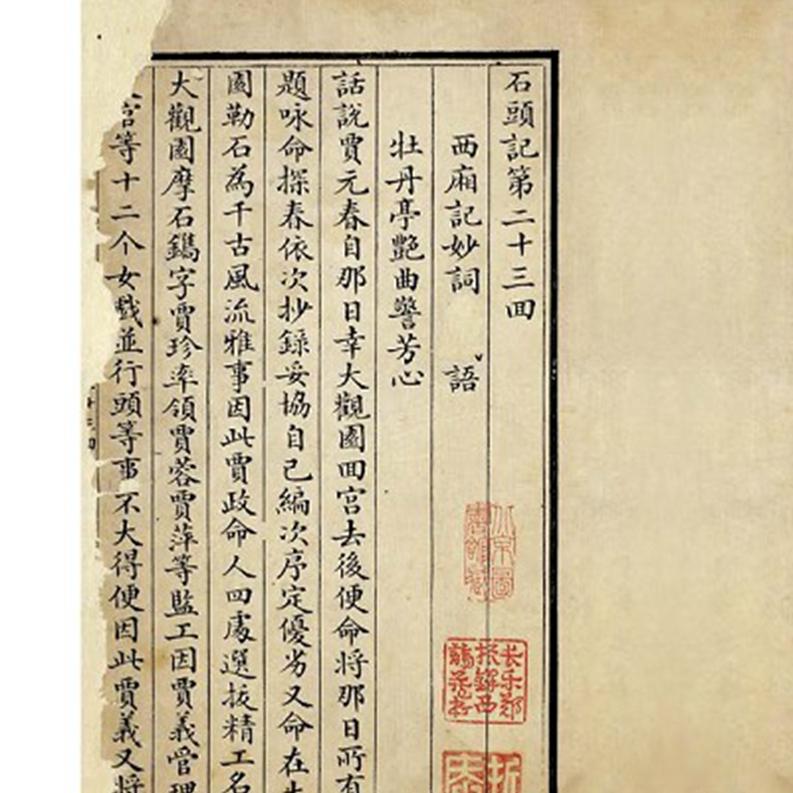 石頭記第二十三回
西廂記妙詞　語
牡丹亭艷曲警芳心
話說賈元春自那日幸大觀園回宮去後便命將那日所有
題咏命探春依次抄錄妥協自己編次序定優劣又命在
園勒石為千古風流雅事因此賈政命人四處選拔精工名
大觀園摩石鐫字賈珍率領賈蓉賈萍等監工因賈義管理
官等十二个女戲並行頭等事不大得便因此賈義又將
長樂鄭
振鐸西
諦藏書